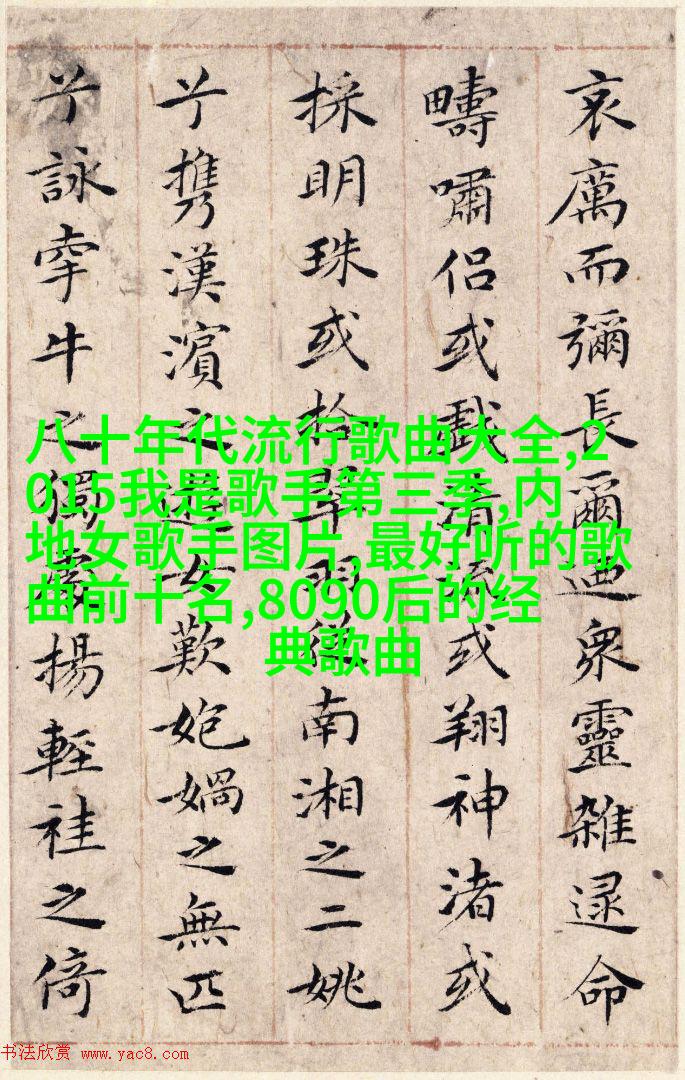 哀厲而彌長爾迺衆靈雜遝命
疇嘯侣或戲清流或翔神渚或
採明珠或拾翠羽從南湘之二姚
兮攜漢濱之遊女歎㚿媧之無匹
兮詠牽牛之獨處揚輕袿之倚
八十年代流行歌曲大全,2
015我是歌手第三季,内
地女歌手图片,最好听的歌
曲前十名,8090后的经
典歌曲
书法欣赏 www.yac8.com